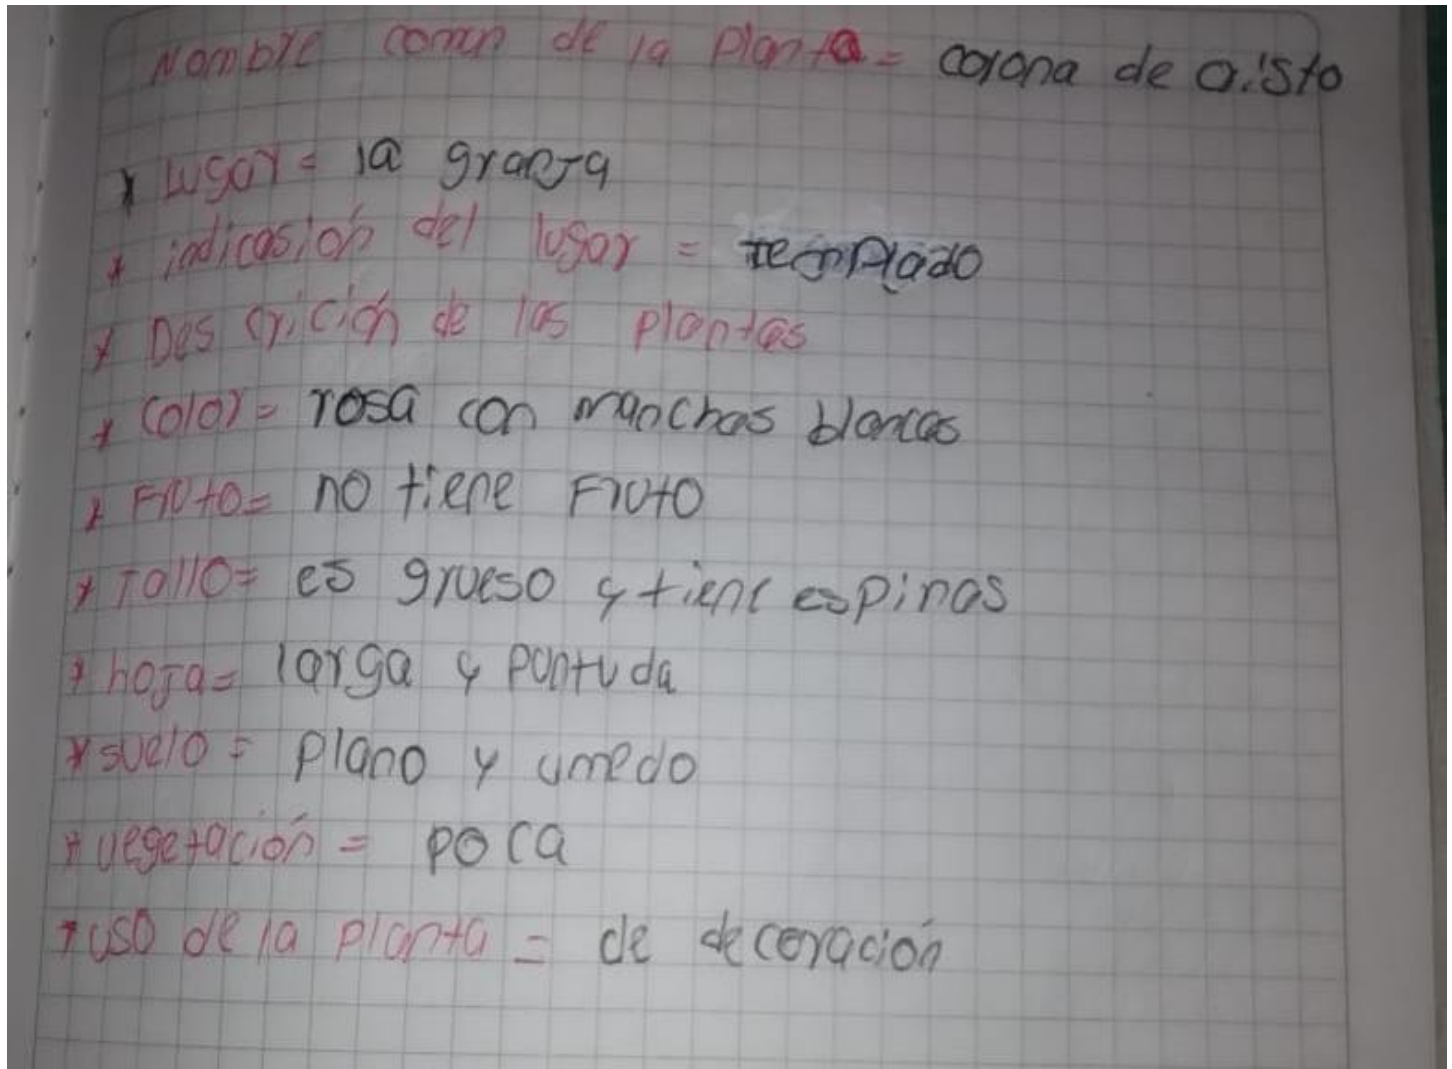 Nombre comun de la planta = corona de cristo
* Lugar = la granja
* indicasión del lugar = templado
* Des crición de las plantas
* Color = rosa con manchas blancas
* Fruto = no tiene Fruto
* Tallo = es grueso y tiene espinas
* hoja = larga y puntuda
* suelo = plano y umedo
* vegetación = poca
* uso de la planta = de decoración